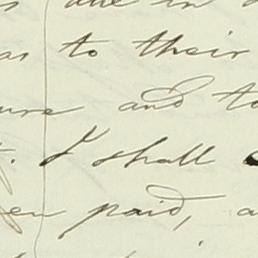 are in
as to their
ure and to
. I shall
en paid, a